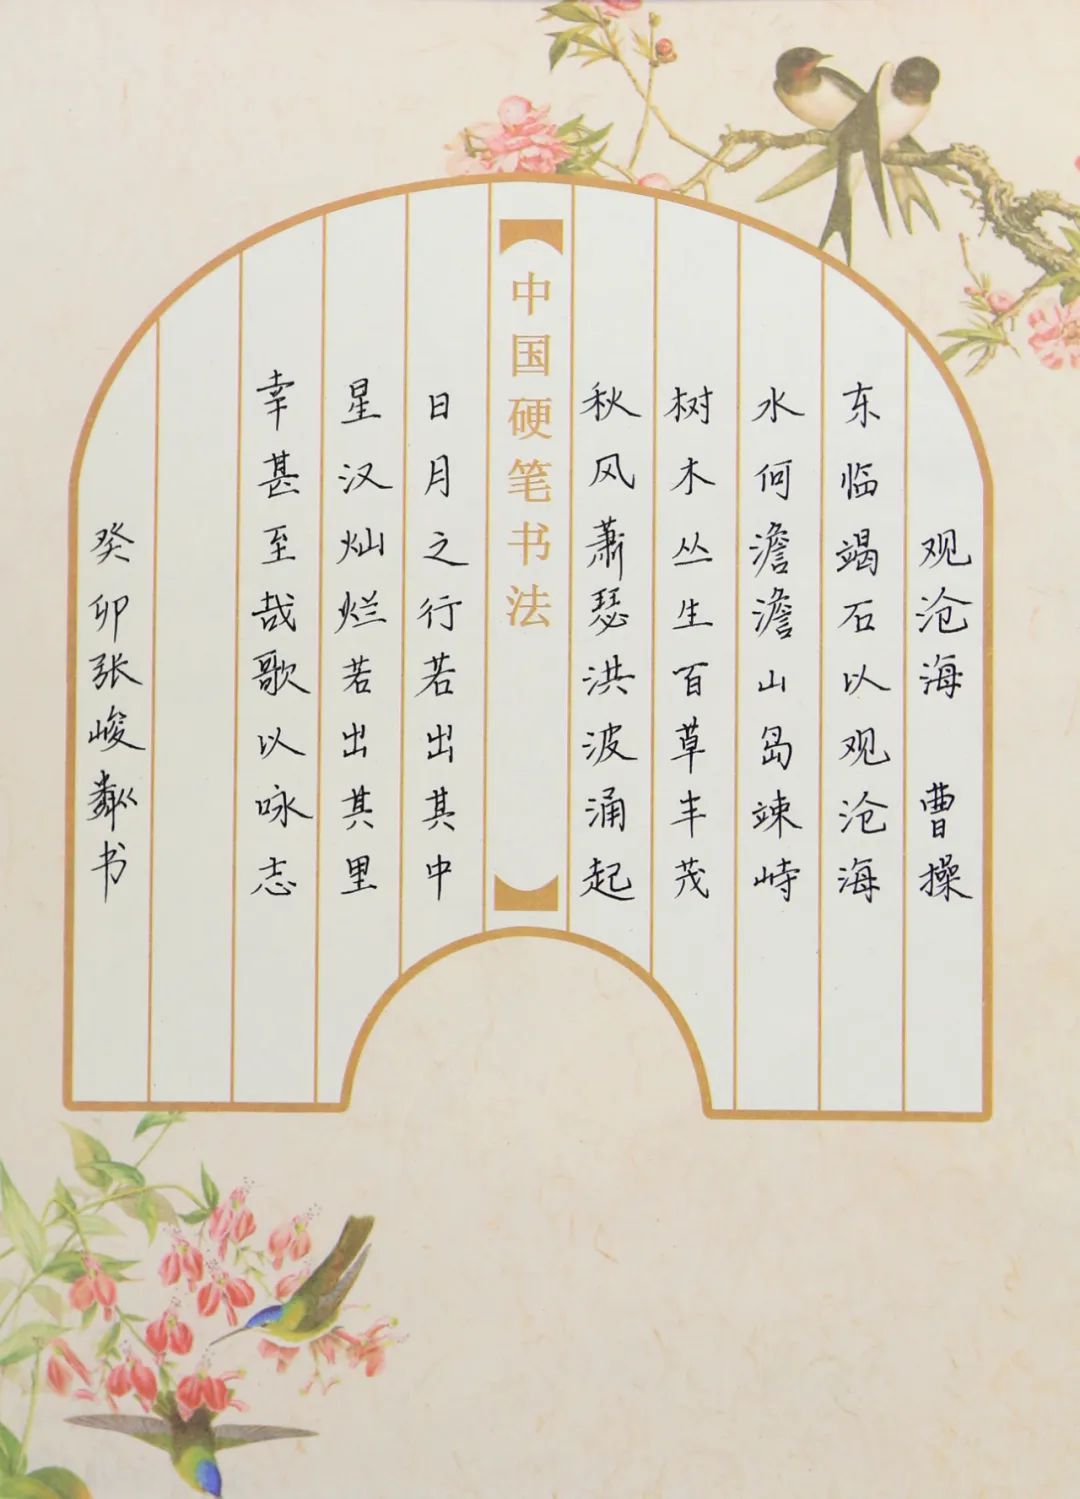 观沧海 曹操
东临竭石以观沧海
水何澹澹山岛竦峙
树木丛生百草丰茂
秋风萧瑟洪波涌起
中国硬笔书法
日月之行若出其中
星汉灿烂若出其里
幸甚至哉歌以咏志
癸卯张峻粼书